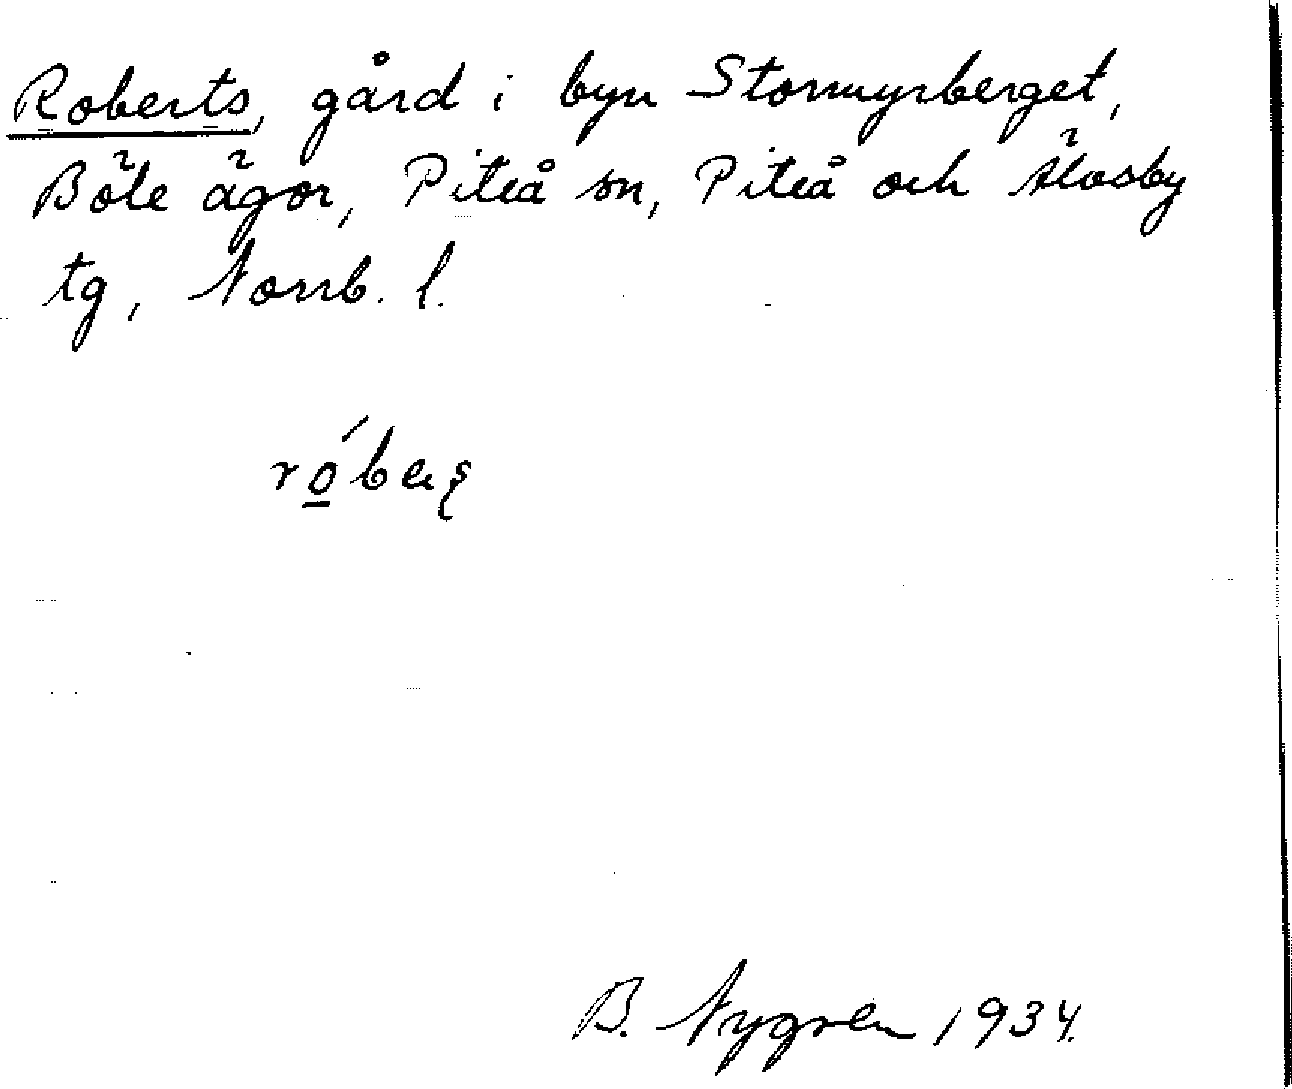 Roberts, gård i byn Stormyrberget,
Böle ägor, Piteå sn, Piteå och Älvsby
tg, Norrb. l.
B. Nygren 1934.